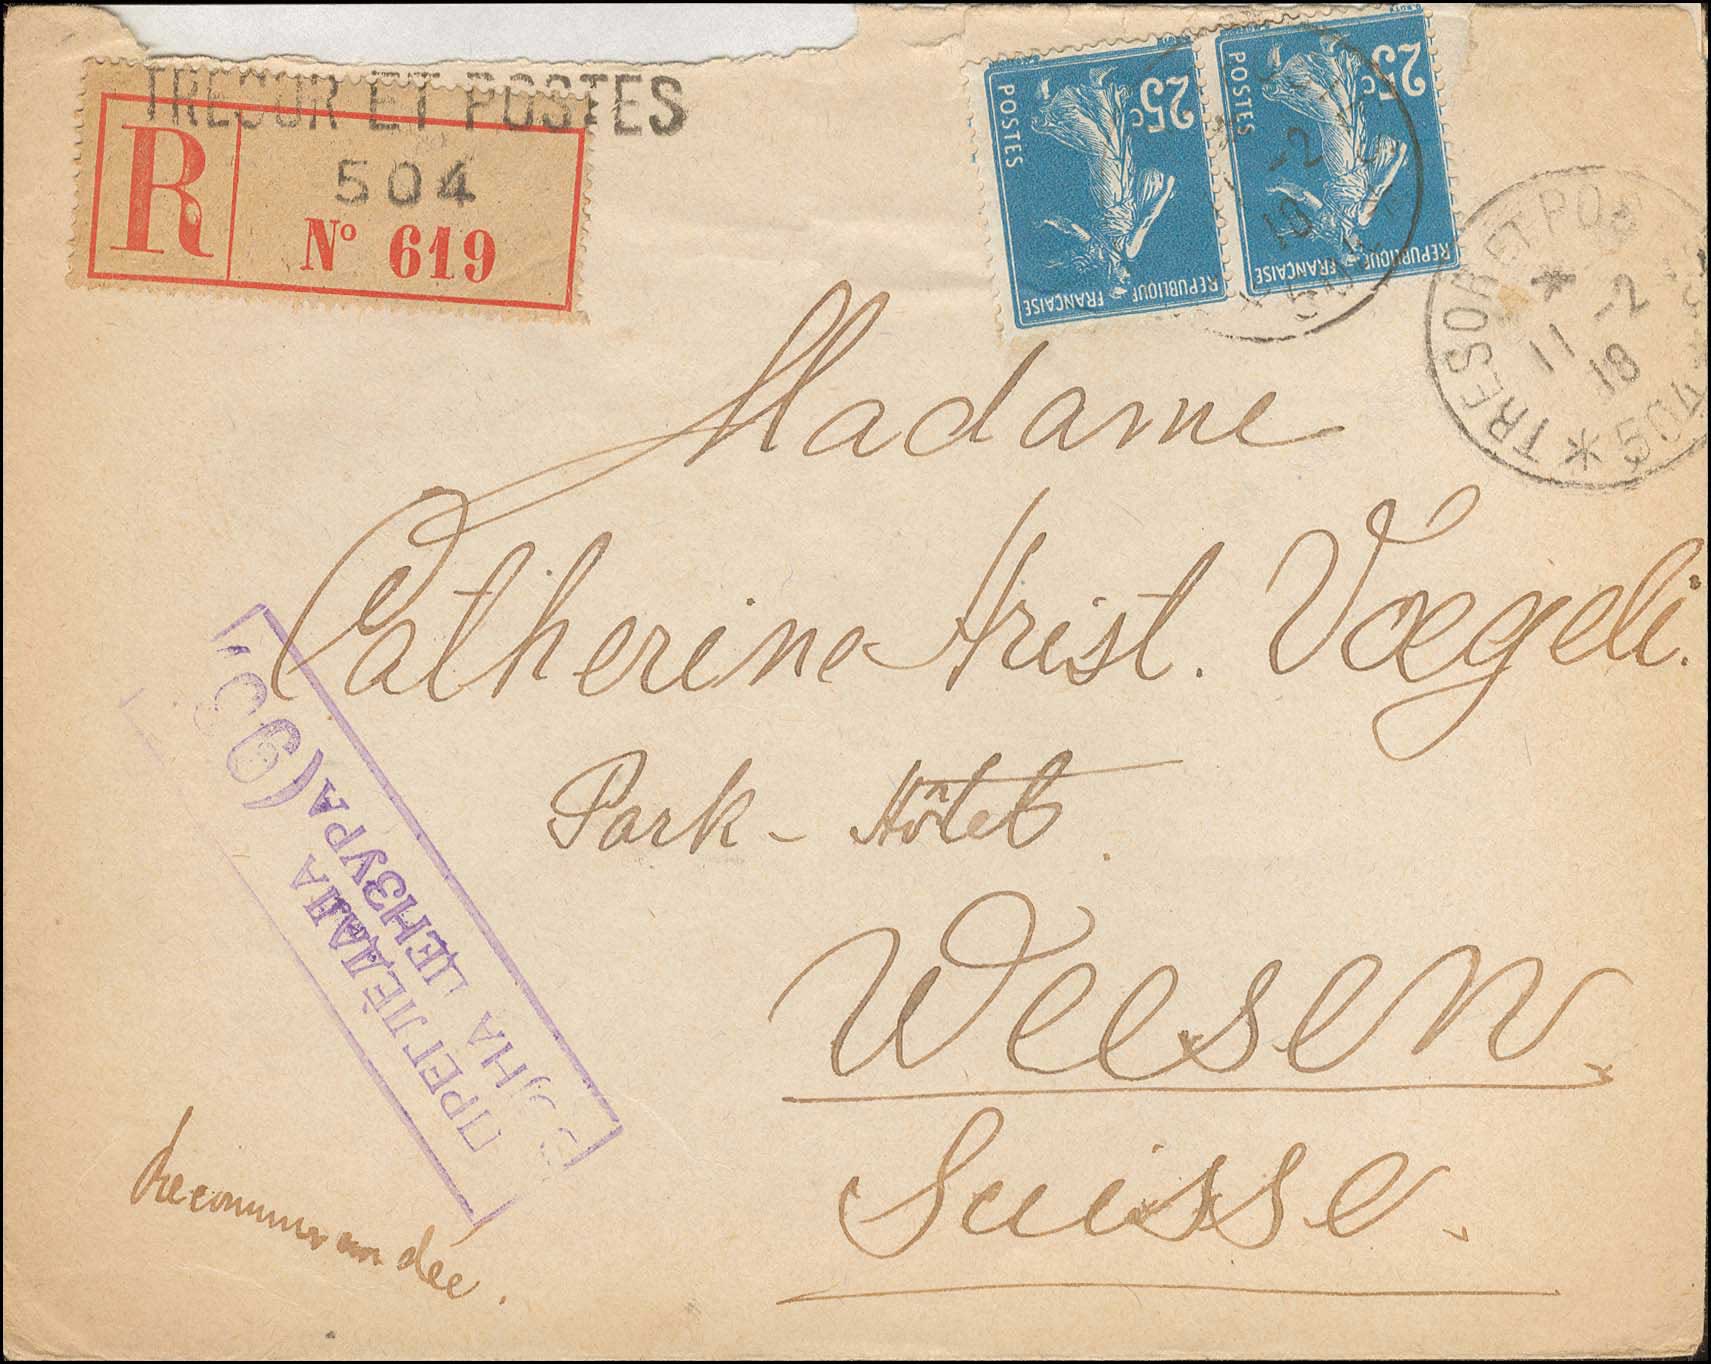 TRESOR ET POSTES
R
504
Nº 619
25c
POSTES
REPUBLIQUE FRANÇAISE
25c
POSTES
REPUBLIQUE FRANÇAISE
-2
TRESOR ET POSTES
* 11 -2
18
* 504 *
Madame
Catherine Hrist. Vœgeli.
Park - Hôtel.
Weesen.
Suisse.
ПРЕГЛЕДАЛА
ЦЕНЗУРА
Recommandée.